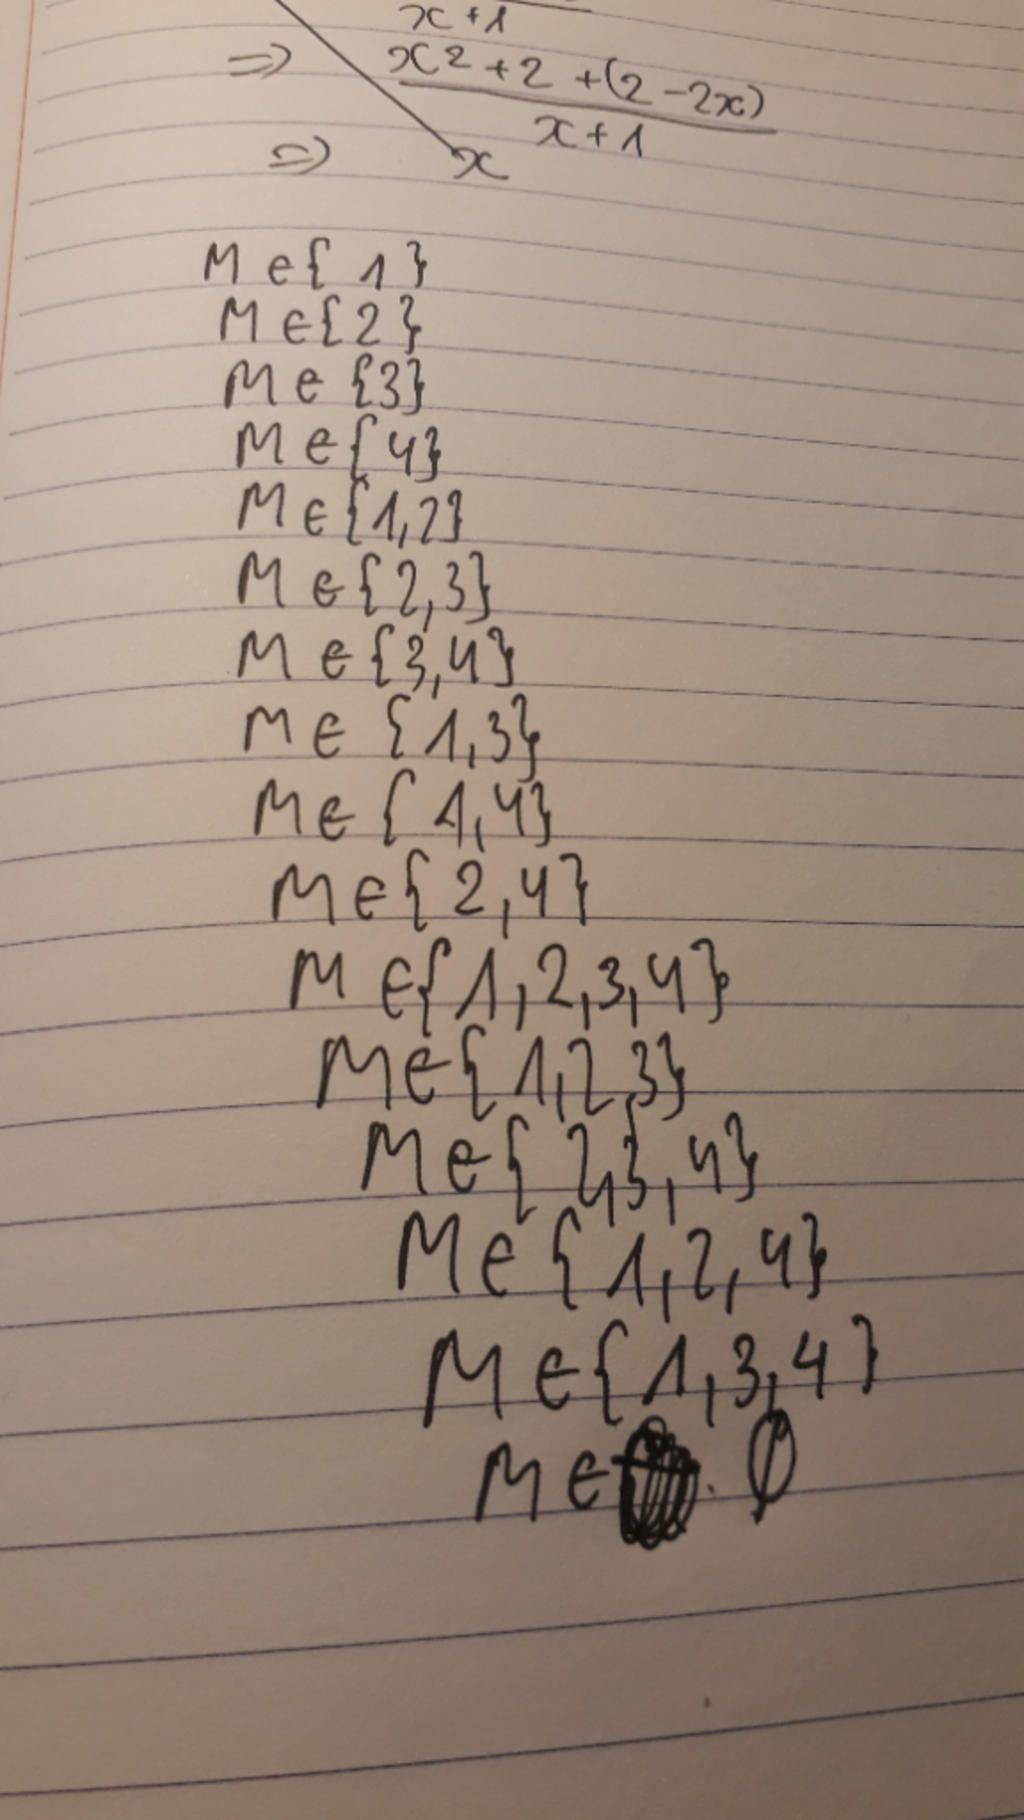 x+1
=> x²+2+(2-2x)
x+1
=> x
M ∈ { 1 }
M ∈ {2}
M ∈ {3}
M ∈ { 4}
M ∈ {1,2}
M ∈ {2,3}
M ∈ {3,4}
M ∈ { 1,3}
M ∈ { 1,4}
M ∈ { 2,4}
M ∈ {1,2,3,4}
M ∈ { 1,2,3}
M ∈ { 2,3,4}
M ∈ { 1,2,4}
M ∈ {1,3,4}
M ∈ ∅